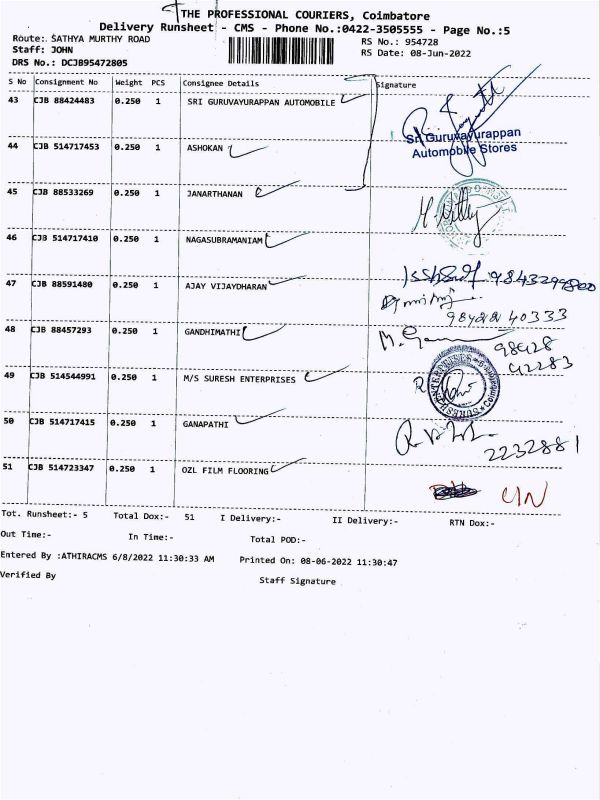 THE PROFESSIONAL COURIERS, Coimbatore
Delivery Runsheet - CMS - Phone No.:0422-3505555 - Page No.:5
Route: SATHYA MURTHY ROAD
RS No.: 954728
Staff: JOHN
RS Date: 08-Jun-2022
DRS No.: DCJB95472805
S No Consignment No Weight PCS Consignee Details Signature
43 CJB 88424483 0.250 1 SRI GURUVAYURAPPAN AUTOMOBILE
Sri Guruvayurappan
Automobile Stores
44 CJB 514717453 0.250 1 ASHOKAN
45 CJB 88533269 0.250 1 JANARTHANAN
46 CJB 514717410 0.250 1 NAGASUBRAMANIAM
9843299800
47 CJB 88591480 0.250 1 AJAY VIJAYDHARAN
40333
48 CJB 88457293 0.250 1 GANDHIMATHI
98428
42283
49 CJB 514544991 0.250 1 M/S SURESH ENTERPRISES
SURESH ENTERPRISES
50 CJB 514717415 0.250 1 GANAPATHI
2232881
51 CJB 514723347 0.250 1 OZL FILM FLOORING
UN
Tot. Runsheet:- 5 Total Dox:- 51 I Delivery:- II Delivery:- RTN Dox:-
Out Time:- In Time:- Total POD:-
Entered By :ATHIRACMS 6/8/2022 11:30:33 AM Printed On: 08-06-2022 11:30:47
Verified By Staff Signature